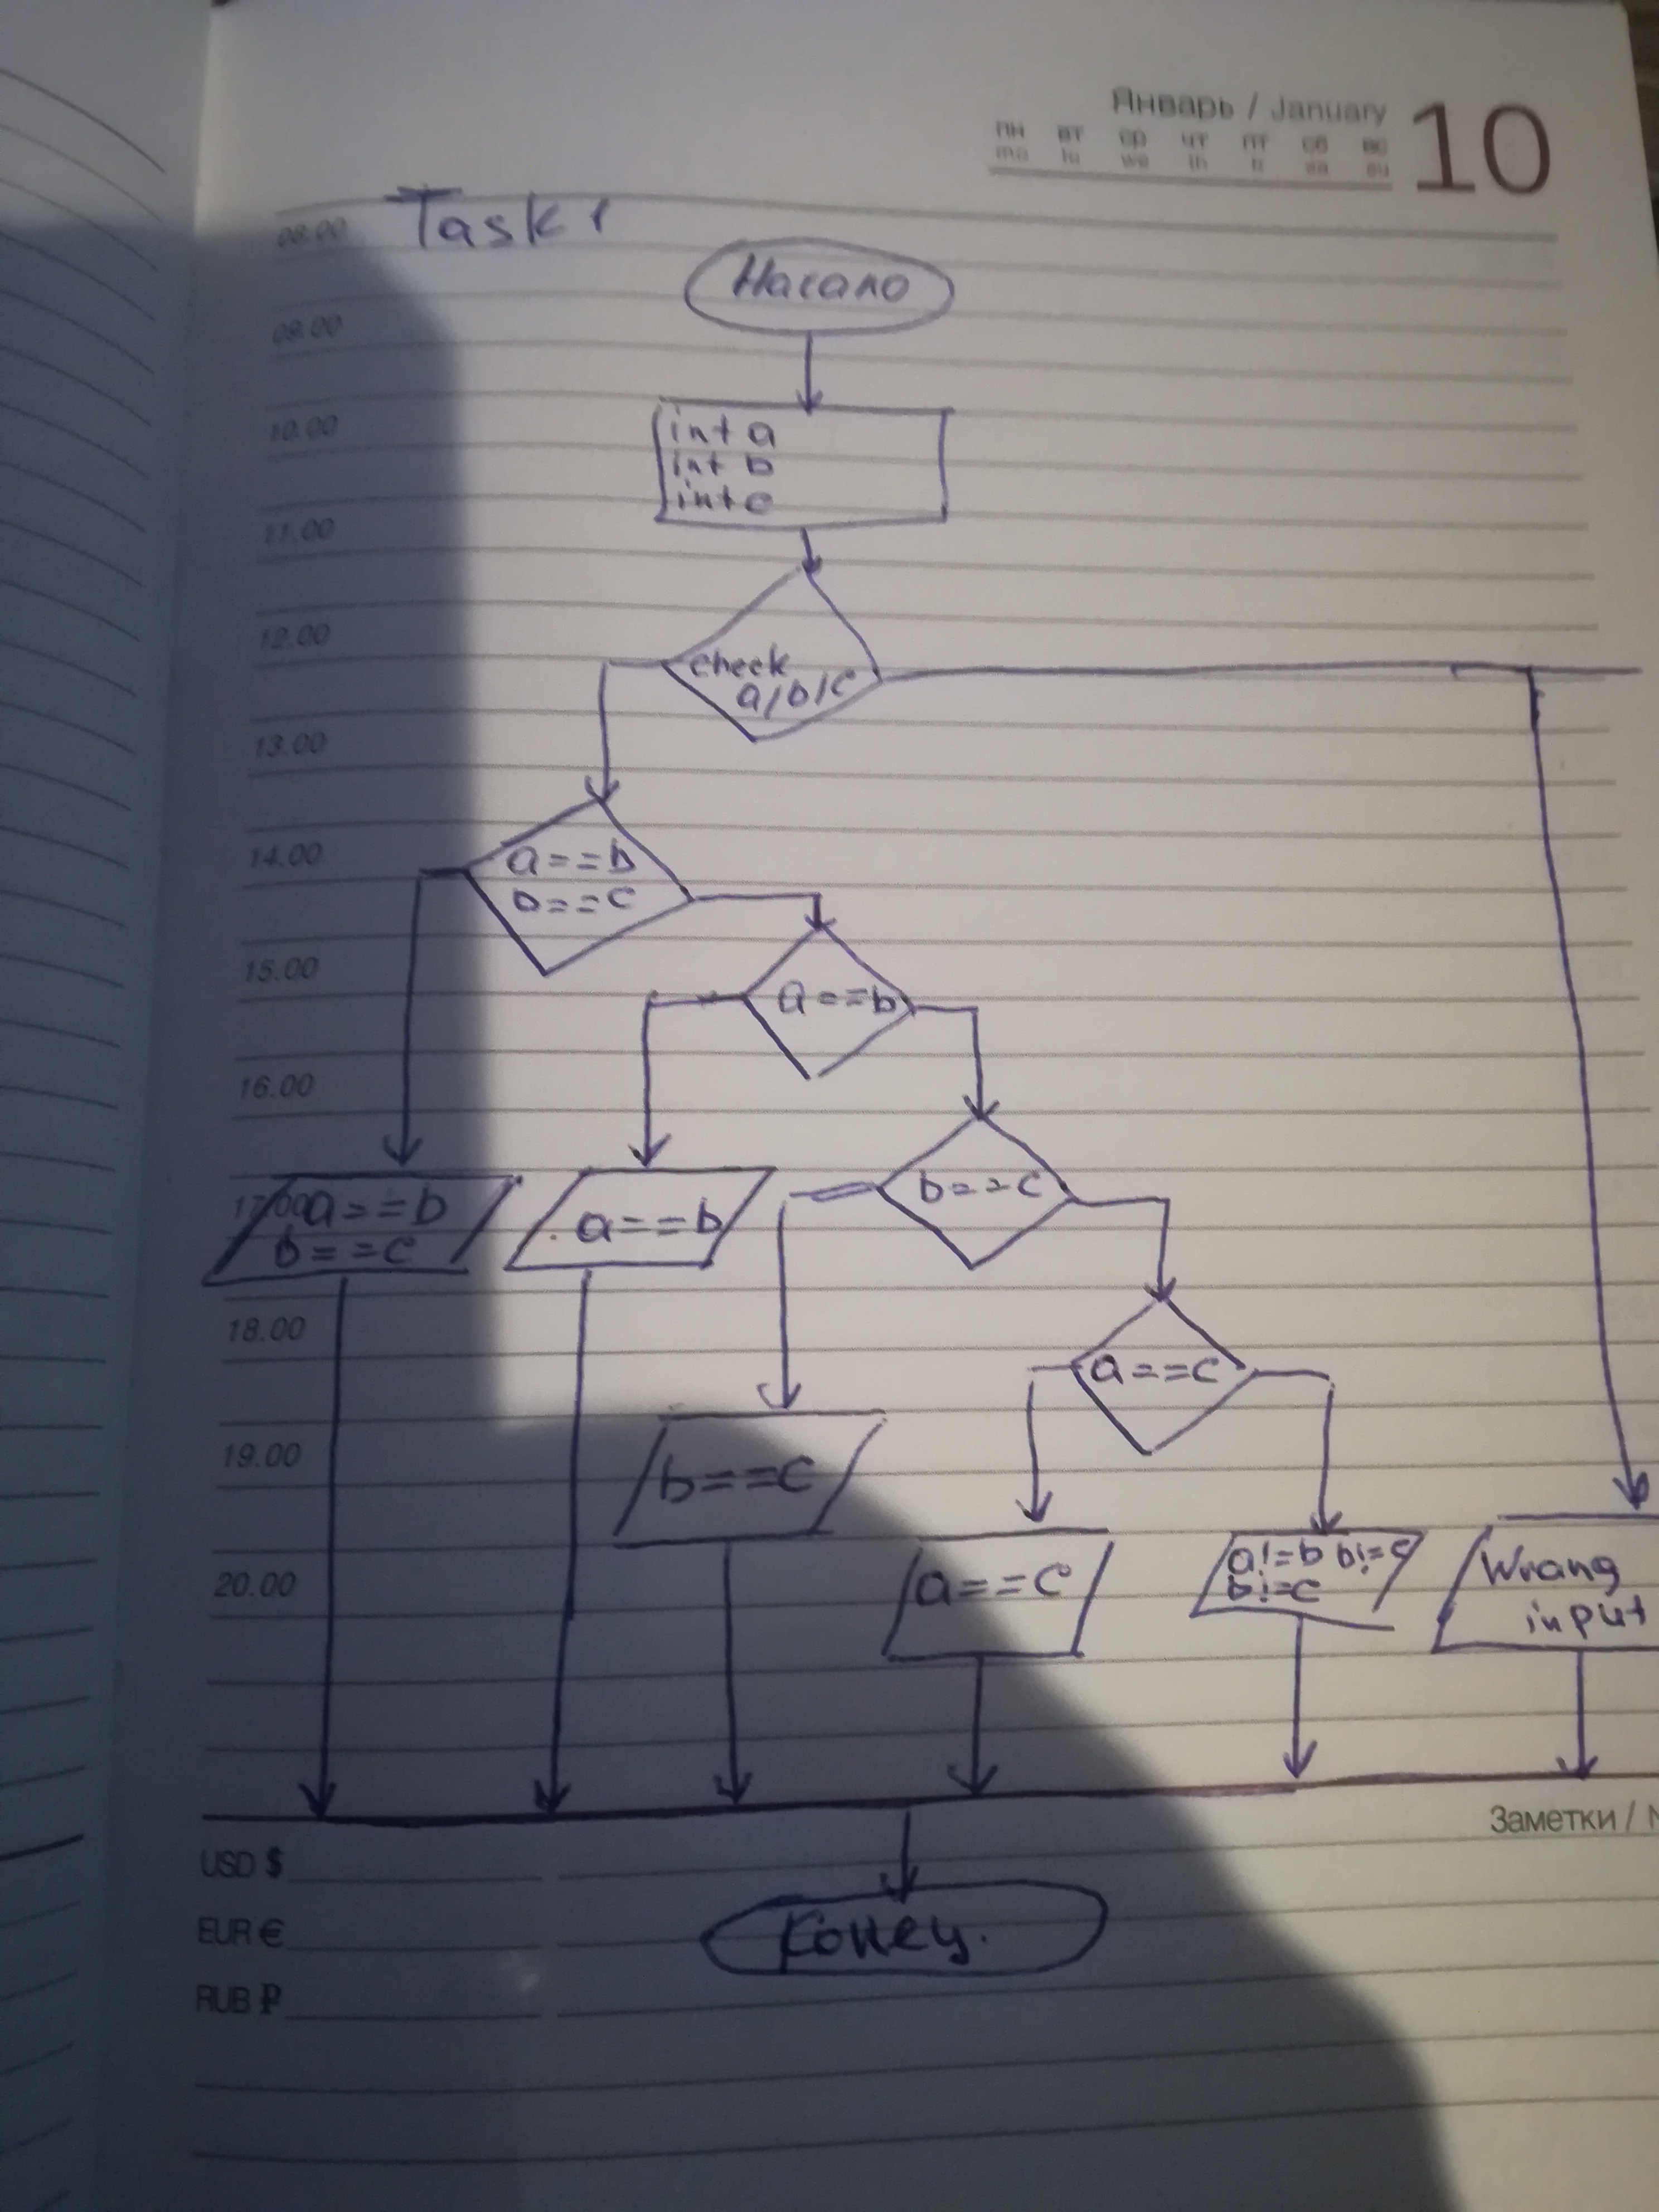 Январь / January 10
пн вт ср чт пт сб вс
mo tu we th fr sa su
08.00 Task 1
Начало
09.00
10.00
int a
int b
int c
11.00
12.00
check
a/b/c
13.00
14.00
a==b
b==c
15.00
a==b
16.00
b==c
17.00
a==b
b==c
a==b
18.00
a==c
19.00
b==c
20.00
a==c
a!=b b!=c
b!=c
Wrang
input
Заметки /
USD $
EUR €
RUB ₽
Конец.